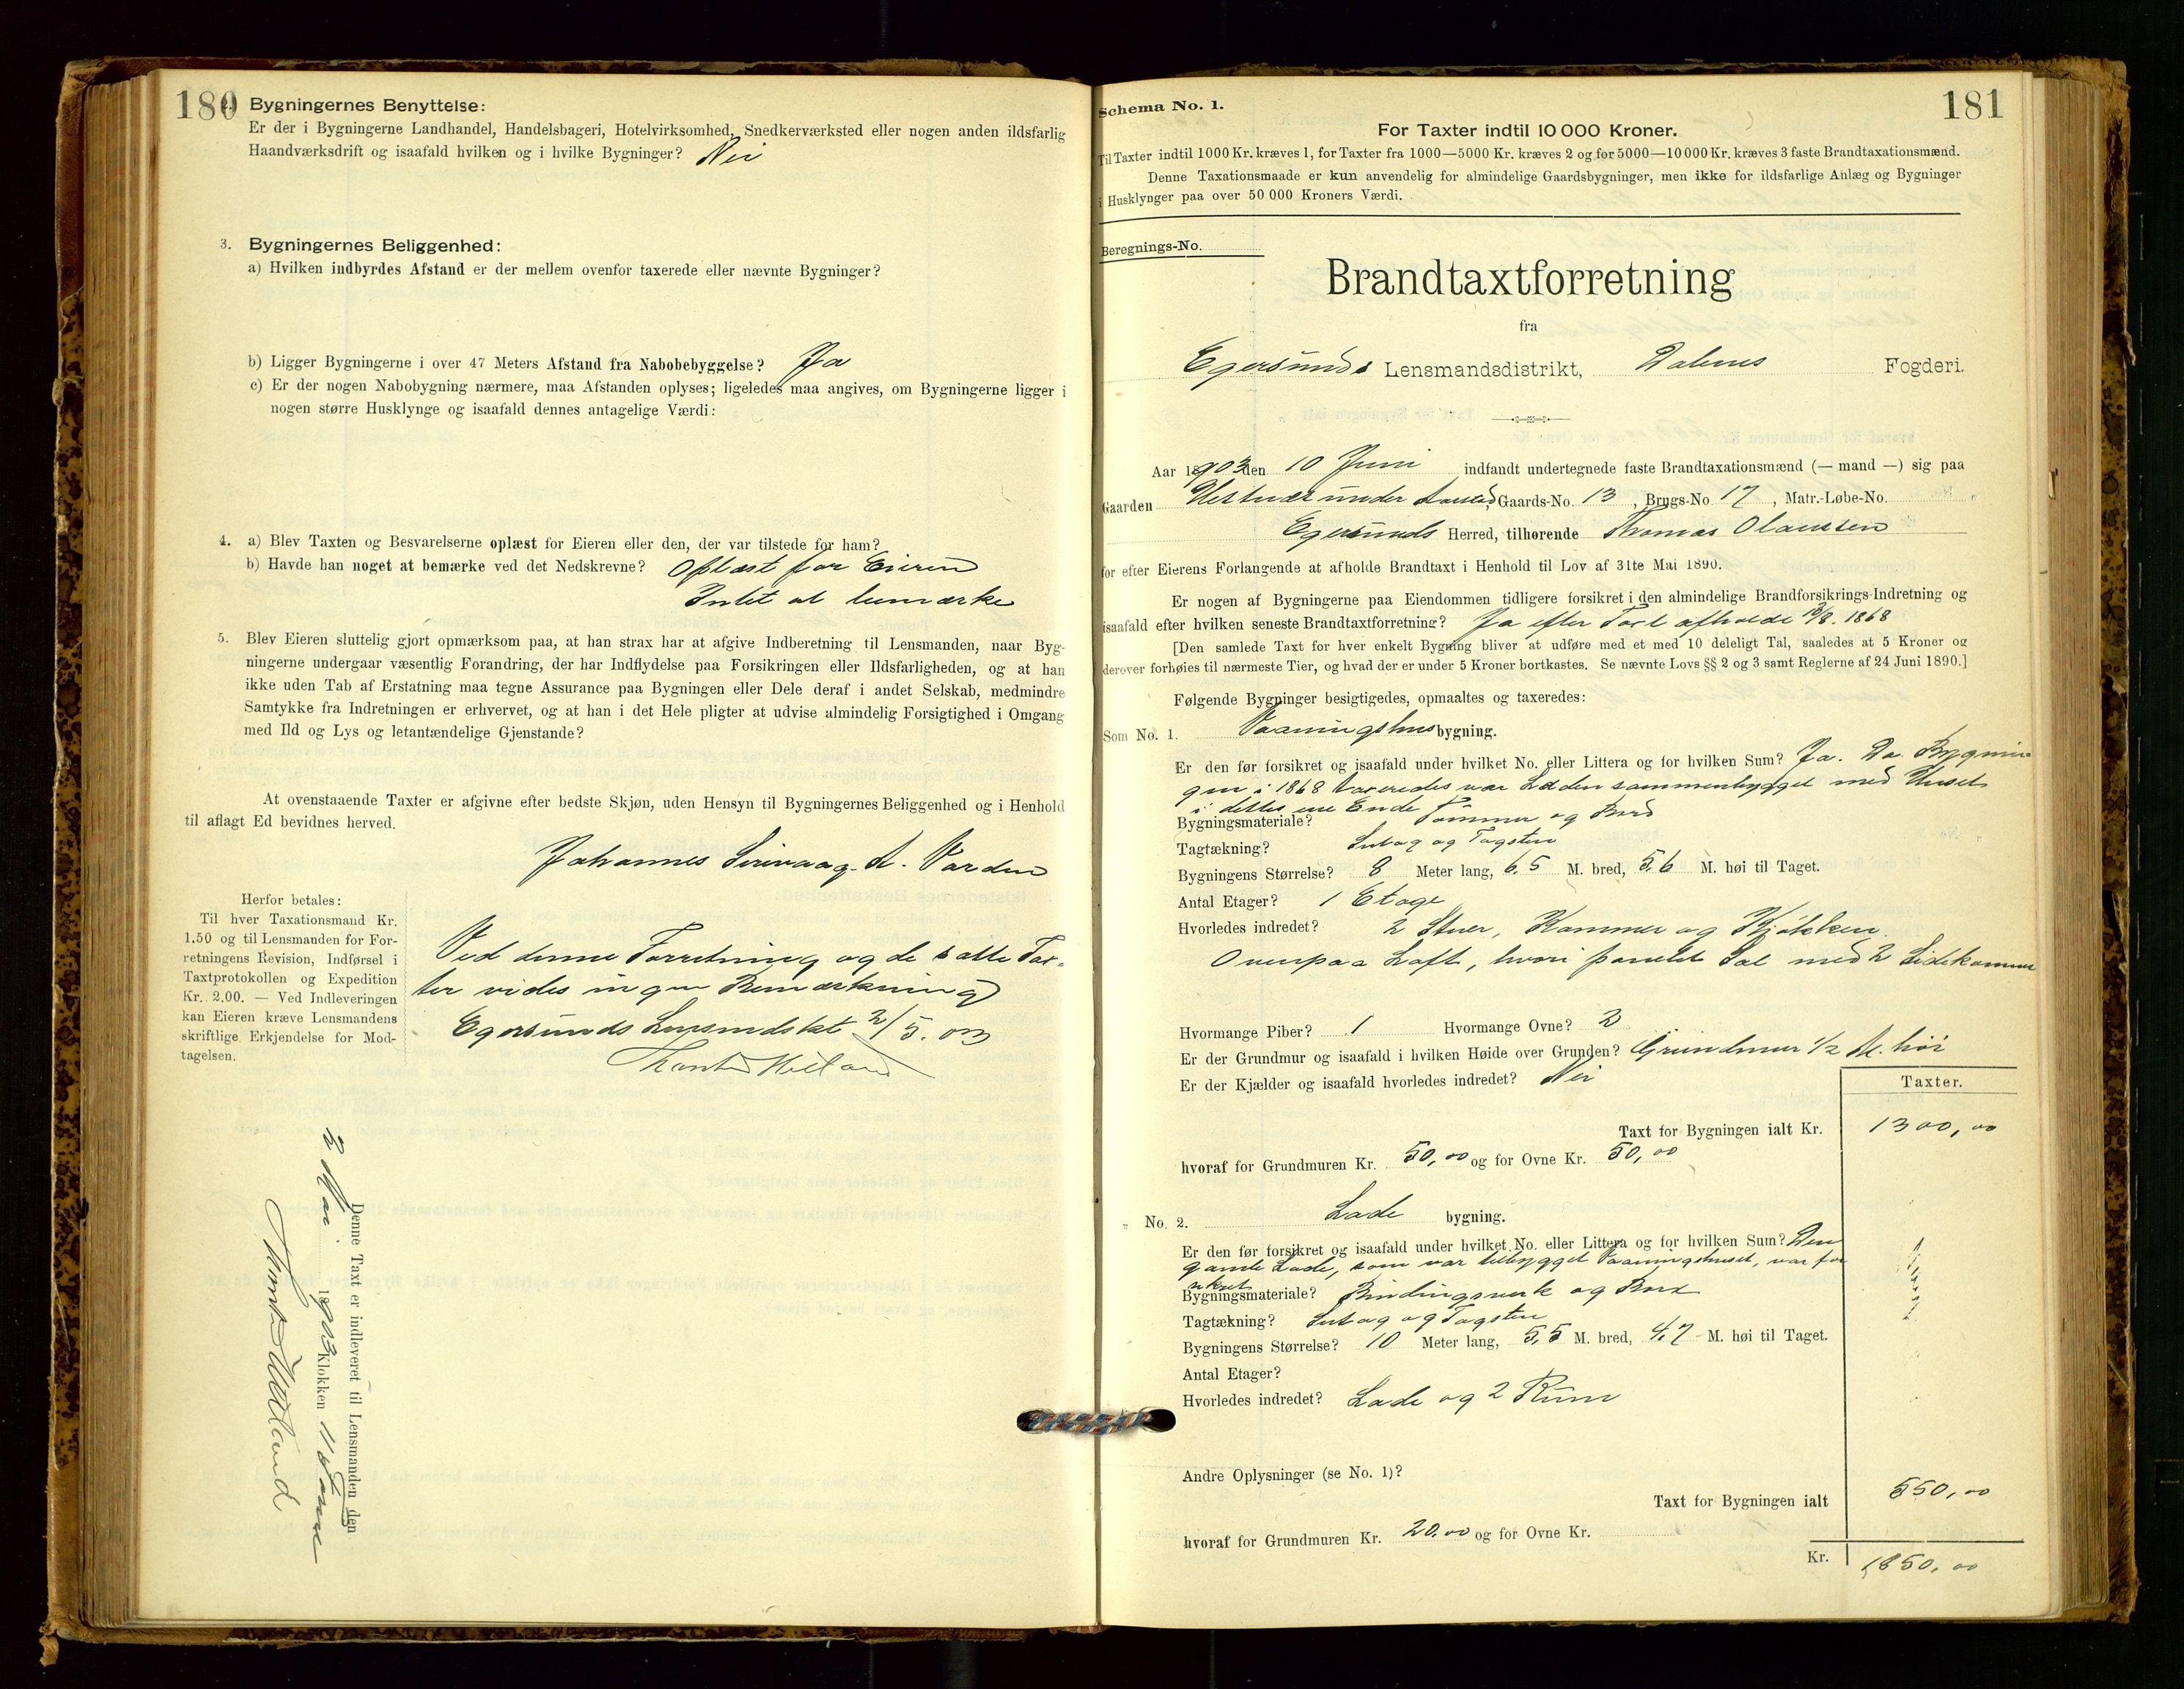 180
2. Bygningernes Benyttelse:
Er der i Bygningerne Landhandel, Handelsbageri, Hotelvirksomhed, Snedkerværksted eller nogen anden ildsfarlig
Haandværksdrift og isaafald hvilken og i hvilke Bygninger? Nei
3. Bygningernes Beliggenhed:
a) Hvilken indbyrdes Afstand er der mellem ovenfor taxerede eller nævnte Bygninger?
b) Ligger Bygningerne i over 47 Meters Afstand fra Nabobebyggelse? Ja
c) Er der nogen Nabobygning nærmere, maa Afstanden oplyses; ligeledes maa angives, om Bygningerne ligger i
nogen større Husklynge og isaafald dennes antagelige Værdi:
4. a) Blev Taxten og Besvarelserne oplæst for Eieren eller den, der var tilstede for ham?
b) Havde han noget at bemærke ved det Nedskrevne? Oplæst for Eieren
Intet at bemærke
5. Blev Eieren sluttelig gjort opmærksom paa, at han strax har at afgive Indberetning til Lensmanden, naar Byg-
ningerne undergaar væsentlig Forandring, der har Indflydelse paa Forsikringen eller Ildsfarligheden, og at han
ikke uden Tab af Erstatning maa tegne Assurance paa Bygningen eller Dele deraf i andet Selskab, medmindre
Samtykke fra Indretningen er erhvervet, og at han i det Hele pligter at udvise almindelig Forsigtighed i Omgang
med Ild og Lys og letantændelige Gjenstande?
At ovenstaaende Taxter er afgivne efter bedste Skjøn, uden Hensyn til Bygningernes Beliggenhed og i Henhold
til aflagt Ed bevidnes herved.
Johannes Sirivaag. A. Varden
Herfor betales:
Til hver Taxationsmand Kr.
1.50 og til Lensmanden for For-
retningens Revision, Indførsel i
Taxtprotokollen og Expedition
Kr. 2.00. — Ved Indleveringen
kan Eieren kræve Lensmandens
skriftlige Erkjendelse for Mod-
tagelsen.
Ved denne Forretning og de satte Tax-
ter vides ingen Bemærkning
Egersunds Lensmdskt 2/5. 03
Denne Taxt er indleveret til Lensmanden den
2 Mai 1903 Klokken 11 Form
181
Schema No. 1.
For Taxter indtil 10 000 Kroner.
Til Taxter indtil 1000 Kr. kræves 1, for Taxter fra 1000—5000 Kr. kræves 2 og for 5000—10 000 Kr. kræves 3 faste Brandtaxationsmænd.
Denne Taxationsmaade er kun anvendelig for almindelige Gaardsbygninger, men ikke for ildsfarlige Anlæg og Bygninger
i Husklynger paa over 50 000 Kroners Værdi.
Beregnings-No.
Brandtaxtforretning
fra
Egersunds Lensmandsdistrikt, Dalernes Fogderi.
Aar 1903 den 10 Juni indfandt undertegnede faste Brandtaxationsmænd (— mand —) sig paa
Gaarden under Aarstad, Gaards-No. 13, Brugs-No. 17, Matr.-Løbe-No.
Egersunds Herred, tilhørende Thomas Olaussen
for efter Eierens Forlangende at afholde Brandtaxt i Henhold til Lov af 31te Mai 1890.
Er nogen af Bygningerne paa Eiendommen tidligere forsikret i den almindelige Brandforsikrings-Indretning og
isaafald efter hvilken seneste Brandtaxtforretning? Ja efter Taxt afholdt 13/8. 1868
[Den samlede Taxt for hver enkelt Bygning bliver at udføre med et med 10 deleligt Tal, saaledes at 5 Kroner og
derover forhøies til nærmeste Tier, og hvad der er under 5 Kroner bortkastes. Se nævnte Lovs §§ 2 og 3 samt Reglerne af 24 Juni 1890.]
Følgende Bygninger besigtigedes, opmaaltes og taxeredes:
Som No. 1. Vaaningshus bygning.
Er den før forsikret og isaafald under hvilket No. eller Littera og for hvilken Sum? Ja. Da Bygnin
gen i 1868 taxeredes var Laden sammenbygget med Huset
i dettes ene Ende
Bygningsmateriale? Tømmer og Bord
Tagtækning? Sutag og Tagsten
Bygningens Størrelse? 8 Meter lang, 6,5 M. bred, 5,6 M. høi til Taget.
Antal Etager? 1 Etage
Hvorledes indredet? 2 Stuer, Kammer og Kjøkken.
Ovenpaa Loft, hvori panelet Sal med 2 Sidekammer
Hvormange Piber? 1 Hvormange Ovne? 2
Er der Grundmur og isaafald i hvilken Høide over Grunden? Grundmur 1/2 M. høi
Er der Kjælder og isaafald hvorledes indredet? Nei
Taxter.
Taxt for Bygningen ialt Kr. 1300,00
hvoraf for Grundmuren Kr. 50,00 og for Ovne Kr. 50,00
„ No. 2. Lade bygning.
Er den før forsikret og isaafald under hvilket No. eller Littera og for hvilken Sum? Den
gamle Lade, som var tilbygget Vaaningshuset, var for
sikret
Bygningsmateriale? Bindingsverk og Bord
Tagtækning? Sutag og Tagsten
Bygningens Størrelse? 10 Meter lang, 5,5 M. bred, 4,7 M. høi til Taget.
Antal Etager?
Hvorledes indredet? Lade og 2 Rum
Andre Oplysninger (se No. 1)?
Taxt for Bygningen ialt 550,00
hvoraf for Grundmuren Kr. 20,00 og for Ovne Kr.
Kr. 1850,00